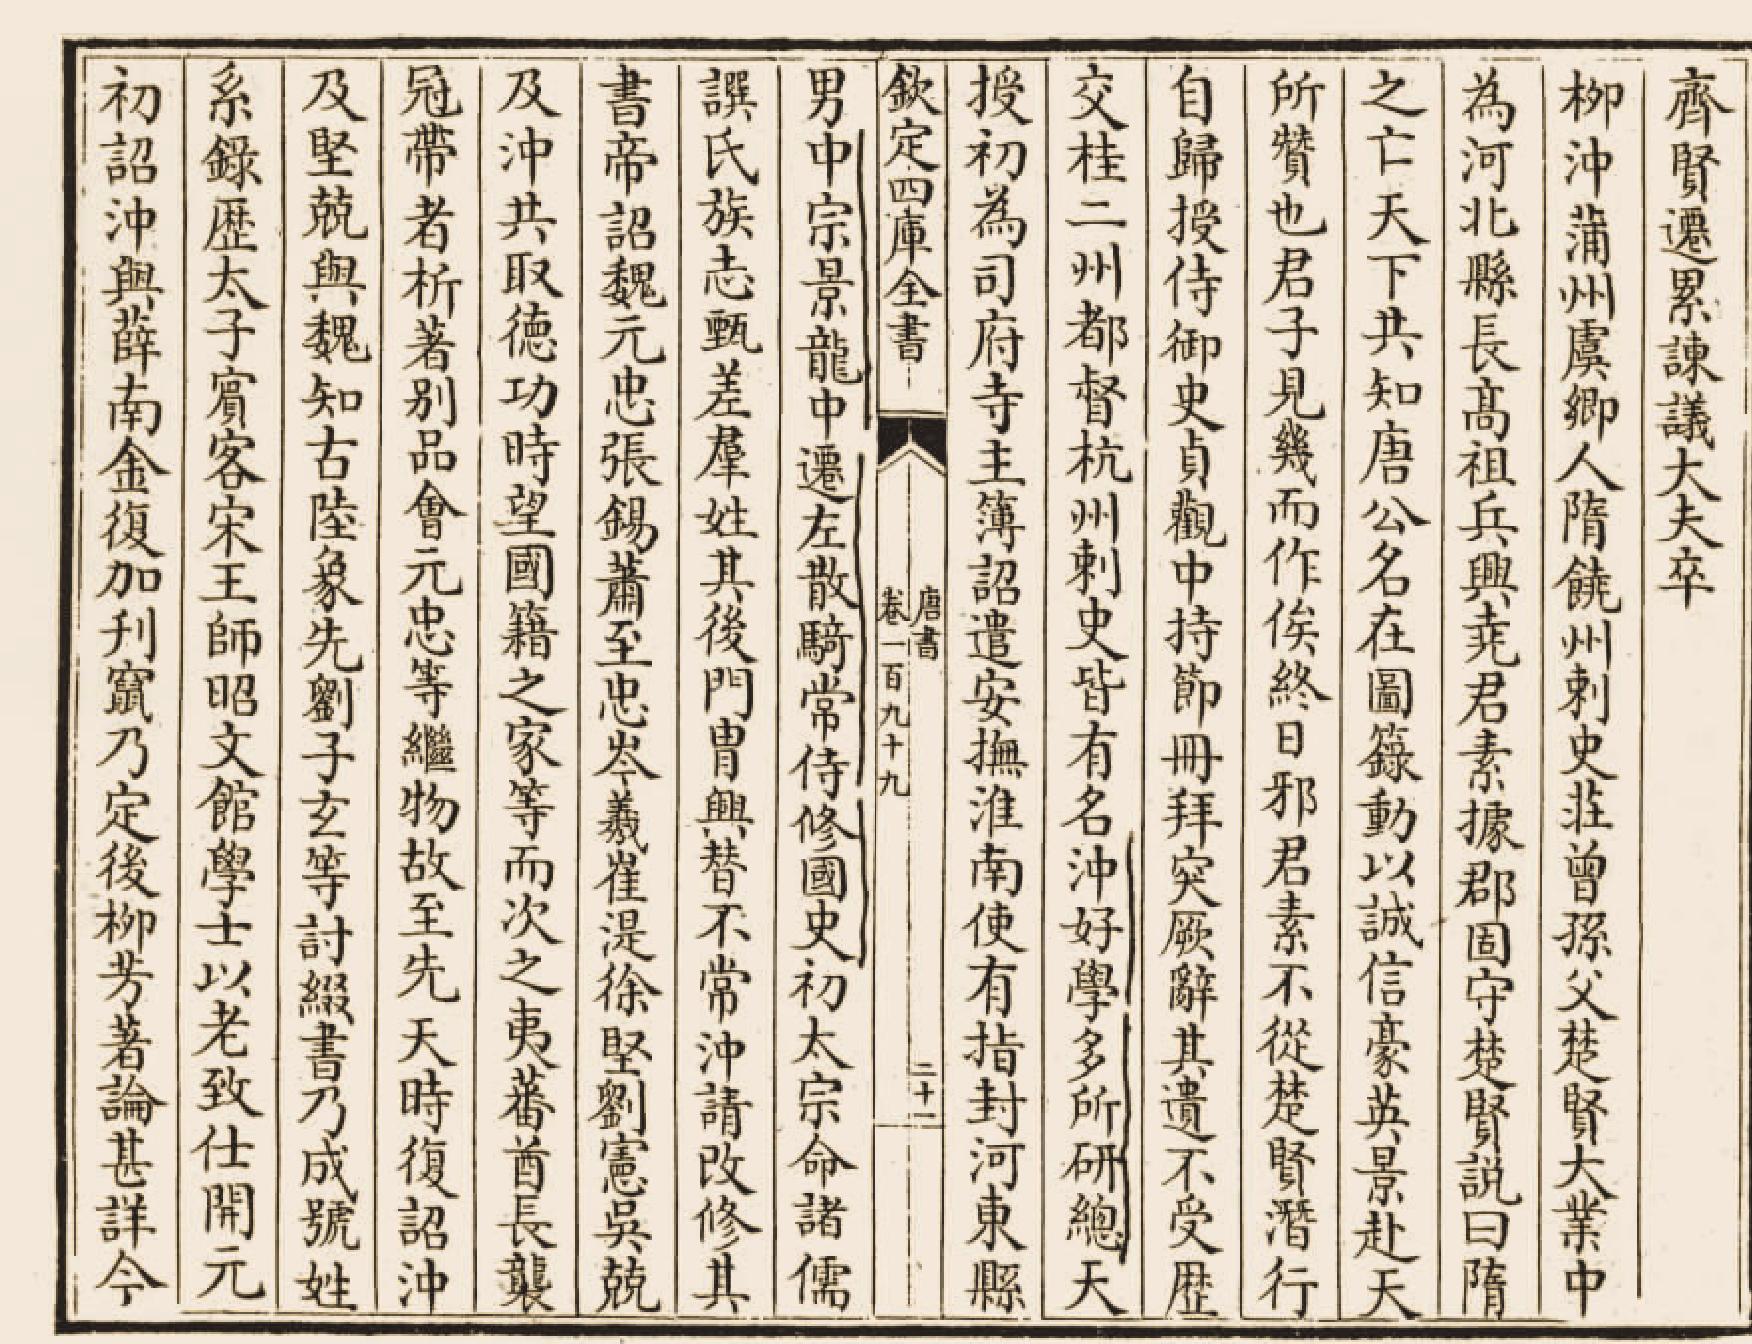 齊賢遷累諫議大夫卒
栁沖蒲州虞鄉人隋饒州刺史莊曾孫父楚賢大業中
為河北縣長髙祖兵興堯君素據郡固守楚賢説曰隋
之亡天下共知唐公名在圖籙動以誠信豪英景赴天
所贊也君子見幾而作俟終日邪君素不從楚賢潛行
自歸授侍御史貞觀中持節冊拜突厥辭其遺不受歴
交桂二州都督杭州刺史皆有名沖好學多所研總天
授初為司府寺主簿詔遣安撫淮南使有指封河東縣
欽定四庫全書
唐書
卷一百九十九
二十一
男中宗景龍中遷左散騎常侍修國史初太宗命諸儒
譔氏族志甄差羣姓其後門胄興替不常沖請改修其
書帝詔魏元忠張錫蕭至忠岑羲崔湜徐堅劉憲吳兢
及沖共取德功時望國籍之家等而次之夷蕃酋長襲
冠帶者析著别品㑹元忠等繼物故至先天時復詔沖
及堅兢與魏知古陸象先劉子玄等討綴書乃成號姓
系錄歴太子賓客宋王師昭文館學士以老致仕開元
初詔沖與薛南金復加刋竄乃定後栁芳著論甚詳今